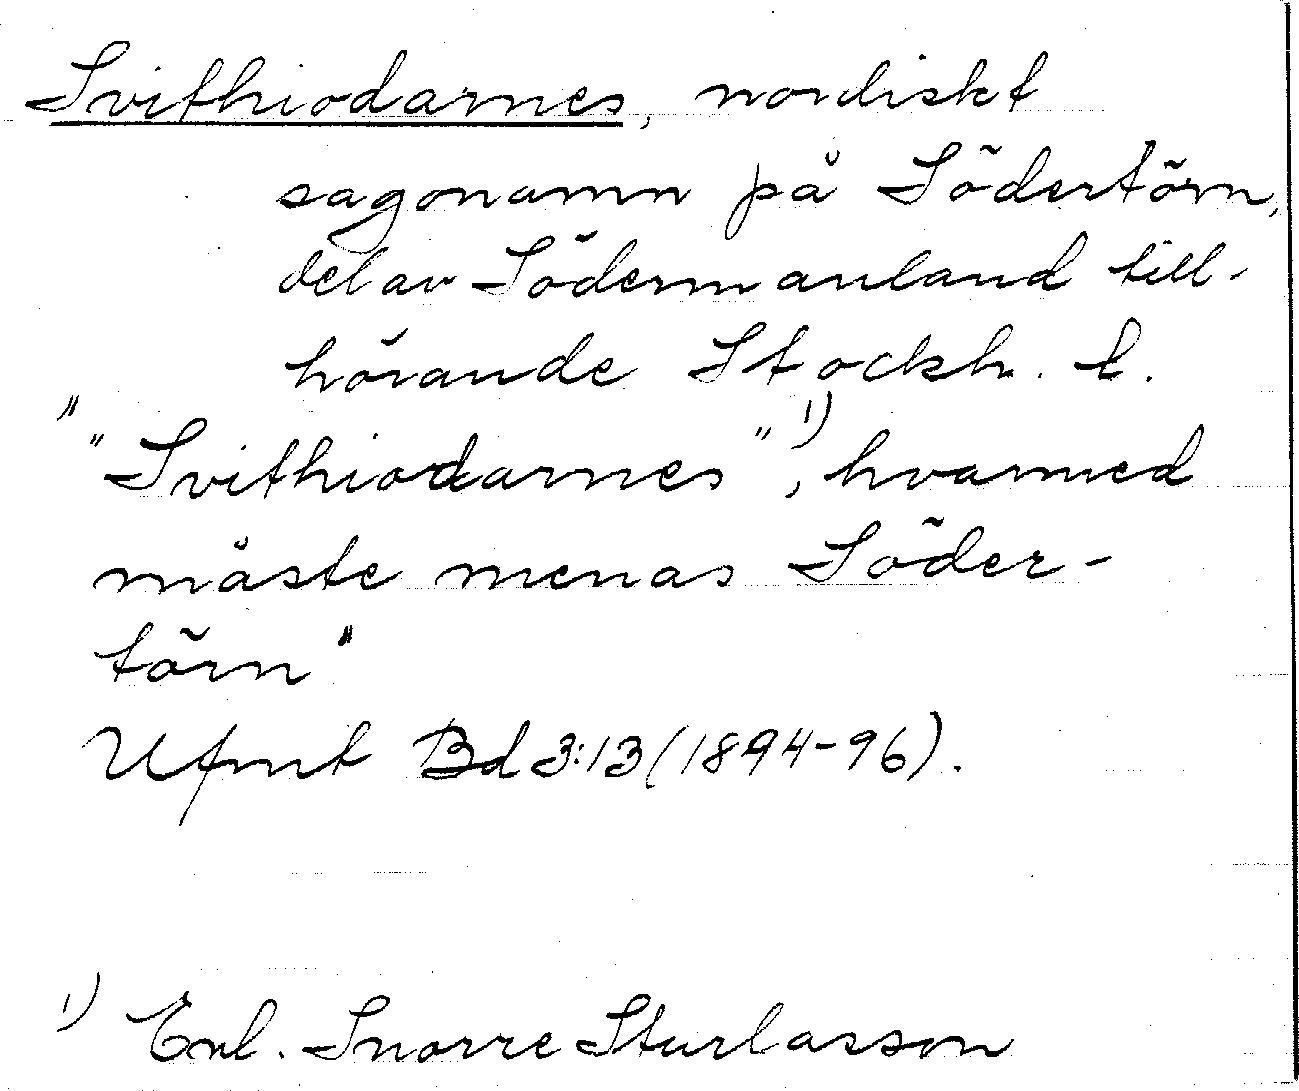 Svithiodarnes, nordiskt
sagonamn på Södertörn,
del av Södermanland till-
hörande Stockh. l.
" "Svithiodarnes" 1), hvarmed
måste menas Söder-
törn"
Ufmt Bd 3:13 (1894-96).
1) Enl. Snorre Sturlasson